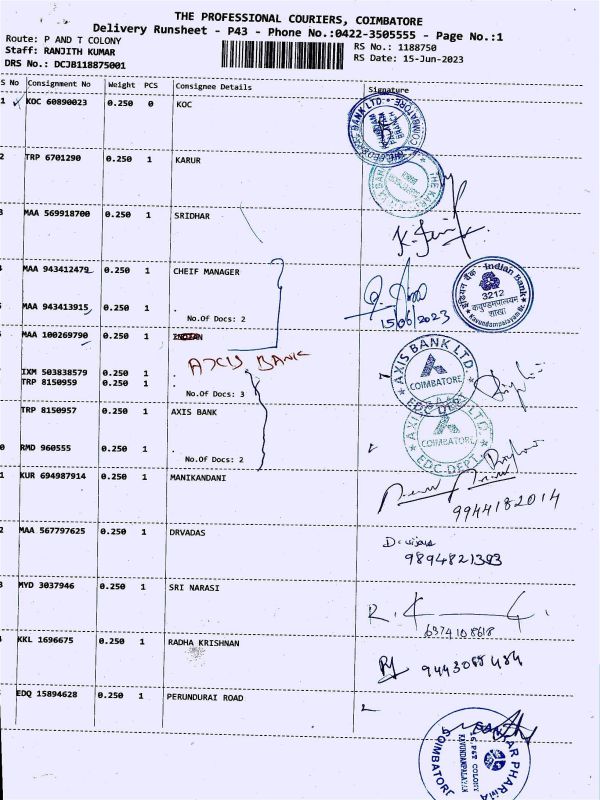 THE PROFESSIONAL COURIERS, COIMBATORE
Delivery Runsheet - P43 - Phone No.:0422-3505555 - Page No.:1
Route: P AND T COLONY
RS No.: 1188750
Staff: RANJITH KUMAR
RS Date: 15-Jun-2023
DRS No.: DCJB118875001
S No Consignment No Weight PCS Consignee Details Signature
1 KOC 60890023 0.250 0 KOC
2 TRP 6701290 0.250 1 KARUR
3 MAA 569918700 0.250 1 SRIDHAR
MAA 943412479 0.250 1 CHEIF MANAGER
Indian Bank
3212
शाखा
MAA 943413915 0.250 1
No.Of Docs: 2
15/06/2023
MAA 100269790 0.250 1
AXIS BANK
IXM 503838579 0.250 1
TRP 8150959 0.250 1
No.Of Docs: 3
AXIS BANK LTD.
COIMBATORE
EDC DEPT.
TRP 8150957 0.250 1 AXIS BANK
COIMBATORE
EDC DEPT.
0 RMD 960555 0.250 1
No.Of Docs: 2
1 KUR 694987914 0.250 1 MANIKANDANI
9944182014
2 MAA 567797625 0.250 1 DRVADAS
D. vijaya
9894821383
3 MYD 3037946 0.250 1 SRI NARASI
6374108618
KKL 1696675 0.250 1 RADHA KRISHNAN
EDQ 15894628 0.250 1 PERUNDURAI ROAD
COIMBATORE